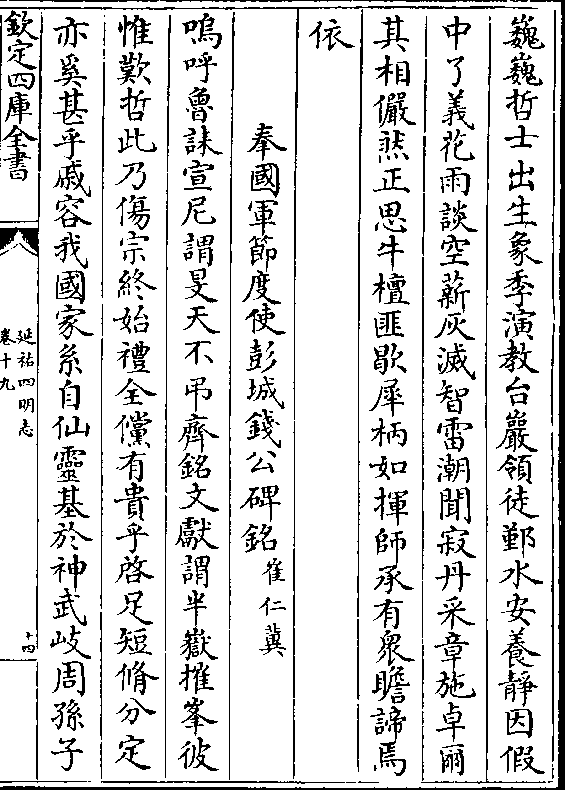 巍巍哲士出生象季演教台巖領徒鄞水安養靜因假
中了義花雨談空薪灰滅智雷潮聞寂丹采章施卓爾
其相儼然正思牛檀匪歇犀柄如揮師承有衆瞻諦焉
依
奉國軍節度使彭城錢公碑銘 崔仁冀
嗚呼魯誄宣尼謂旻天不弔齊銘文獻謂半嶽摧峯彼
惟歎哲此乃傷宗終始禮全儻有貴乎啓足短脩分定
亦奚甚乎戚容我國家系自仙靈基於神武岐周孫子
欽定四庫全書
延祐四明志
卷十九
十四